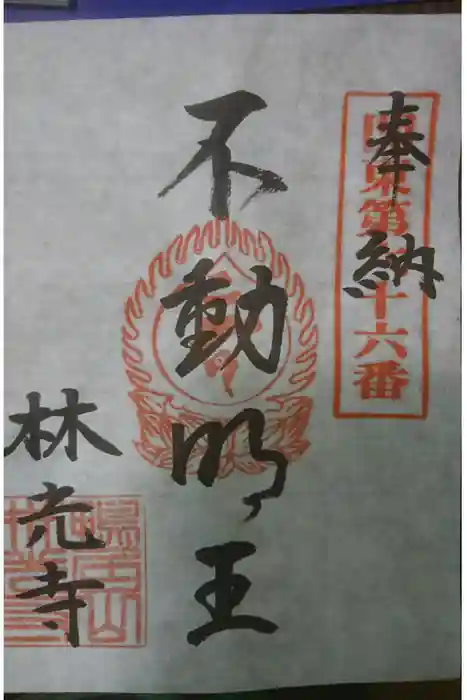 奉納
東第 十六番
不動明王
林光寺